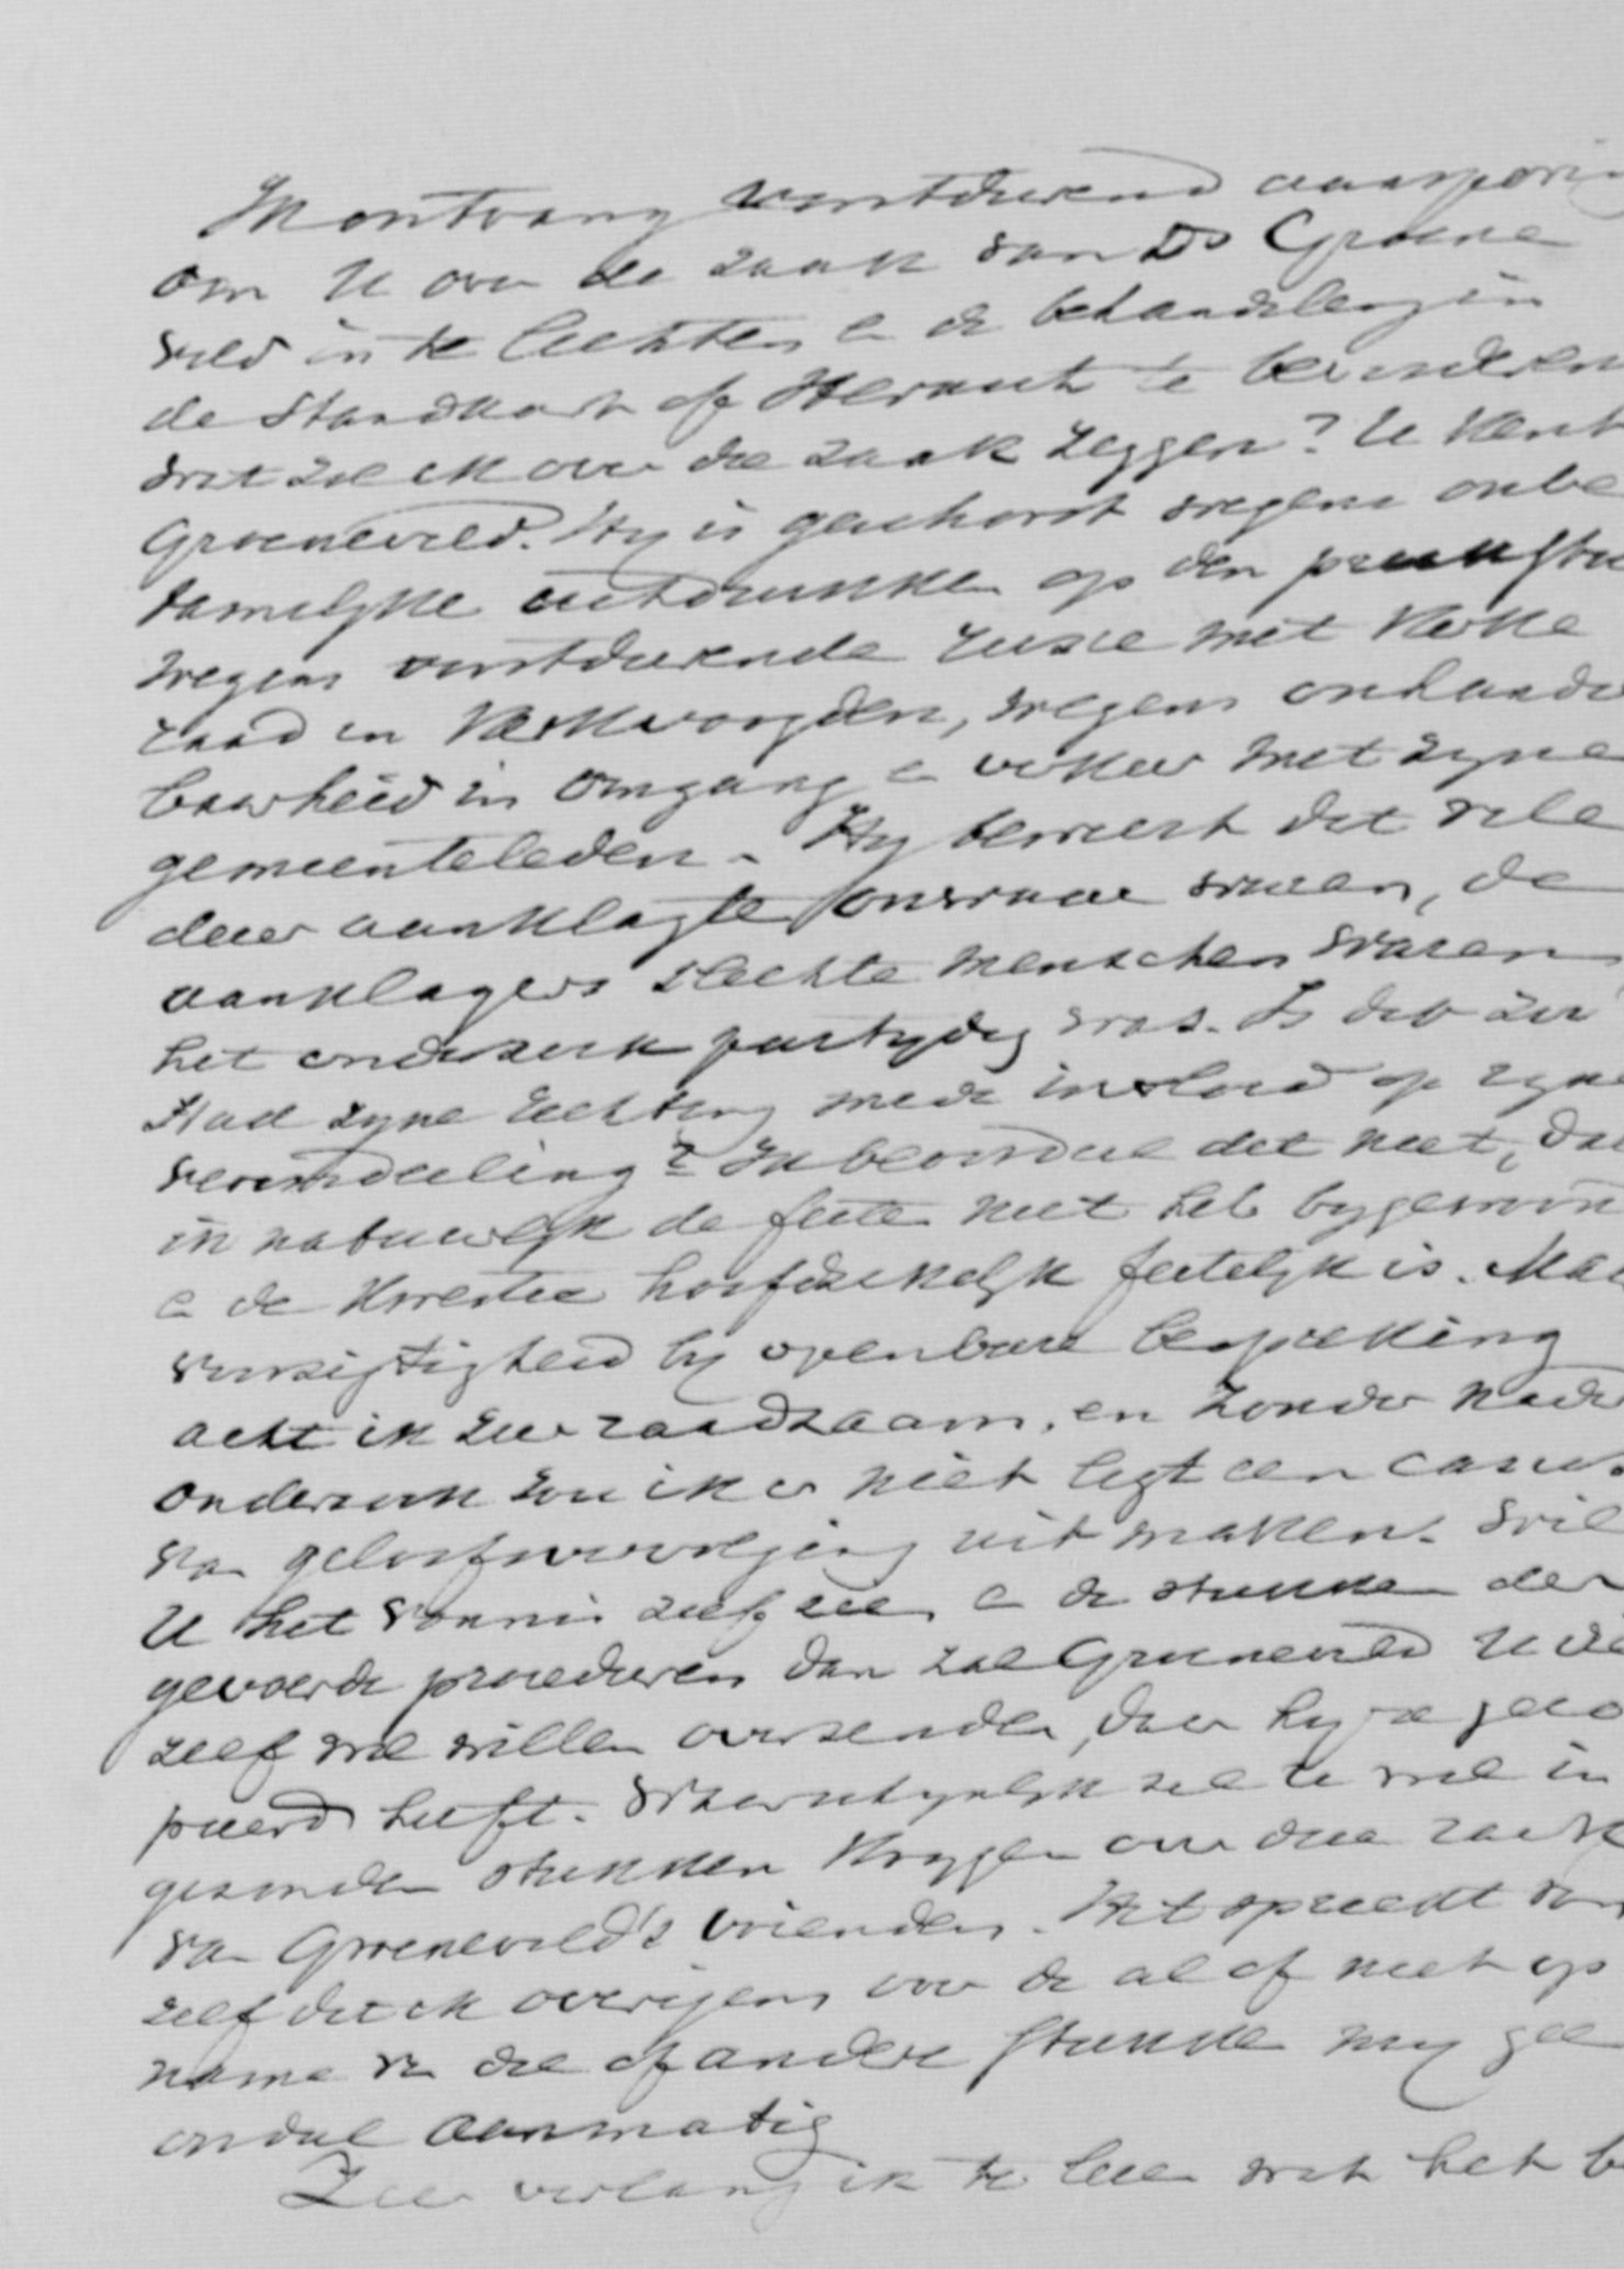 Ik ontvang voortdurend aansporin
om U over de zaak van Ds Groene
veld in te lichten & de behandeling in
de Standaard of Heraut te bevorderen
Wat zal ik over die zaak zeggen? U kent
Groeneveld. Hy is geschorst wegens onbe
tamelyke uitdrukken op den preekstoe
wegens voortdurende ruzie met Kerke
raad en Kerkvoogden, wegens onhandel
baarheid in omgang & verkeer met zyne
gemeenteleden. Hy beweert dat vele
dier aanklagte onwaar waren, de
aanklagers slechte menschen waren
het onderzoek partydig was. Is dat zoo
Had zyne richting mede invloed op zyne
veroordeeling? Ik beoordeel dit niet, daar
ik natuurlyk de feiten niet heb bygewoond
& de kwestie hoofdzakelyk feitelyk is. Maar
voorzigtigheid by openbare bespreking
acht ik zeer raadzaam, en zonder nader
onderzoek zou ik er niet ligt een casus
van geloofsvervolging uit maken. Wil
U het vonnis zelf zien & de stukken der
gevoerde procedures dan zal Groeneveld U die
zelf wel willen overzenden, daar hy ze geco
pieerd heeft. Waarschynlyk zal U wel in
gezonden stukken krygen over deze zaak
van Groeneveld's vrienden. Het spreekt van
zelf dat ik overigens over de al of niet op
name van die of andere stukken my geen
oordeel aanmatig
Zeer verlang ik te lezen wat het b